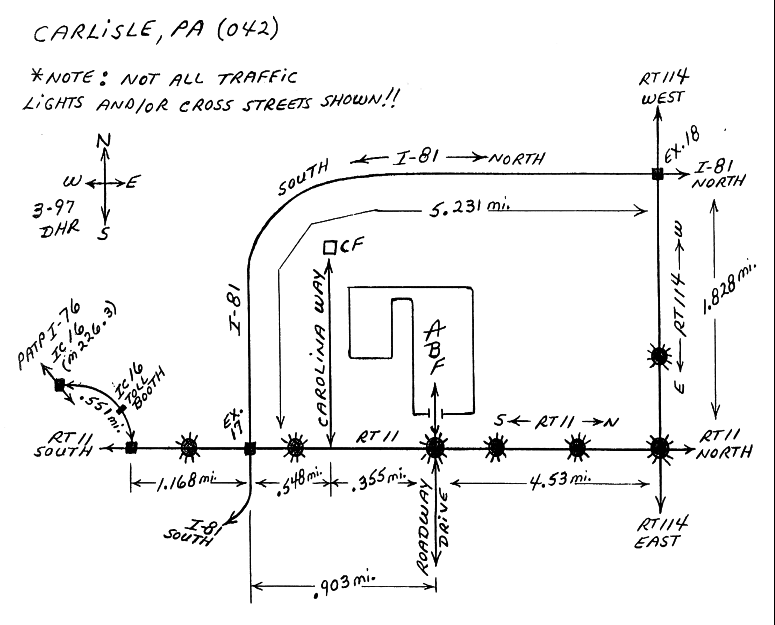 CARLISLE, PA (042)
*NOTE: NOT ALL TRAFFIC
LIGHTS AND/OR CROSS STREETS SHOWN!!
RT 114
WEST
EX. 18
N
W E
S
3-97
DHR
SOUTH I-81 NORTH
I-81
NORTH
5.231 mi.
CF
I-81
CAROLINA WAY
A
B
F
E RT 114 W
1.828 mi.
PATP I-76
IC 16
(m 226.3)
IC 16
TOLL
BOOTH
.551 mi.
EX.
17
RT 11
SOUTH
RT 11
S RT 11 N
RT 11
NORTH
1.168 mi.
.548 mi.
.355 mi.
4.53 mi.
I-81
SOUTH
ROADWAY
DRIVE
RT 114
EAST
.903 mi.